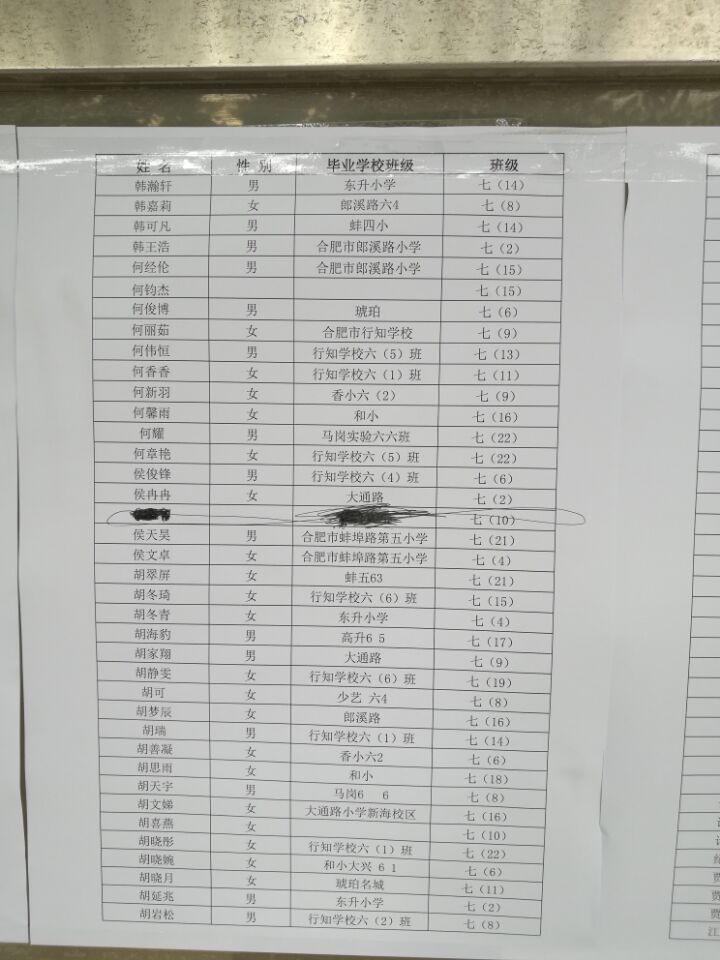 姓 名 性 别 毕业学校班级 班级
韩瀚轩 男 东升小学 七（14）
韩嘉莉 女 郎溪路六4 七（8）
韩可凡 男 蚌四小 七（14）
韩王浩 男 合肥市郎溪路小学 七（2）
何经伦 男 合肥市郎溪路小学 七（15）
何钧杰 七（15）
何俊博 男 琥珀 七（6）
何丽茹 女 合肥市行知学校 七（9）
何伟恒 男 行知学校六（5）班 七（13）
何香香 女 行知学校六（1）班 七（11）
何新羽 女 香小六（2） 七（9）
何馨雨 女 和小 七（16）
何耀 男 马岗实验六六班 七（22）
何章艳 女 行知学校六（5）班 七（22）
侯俊锋 男 行知学校六（4）班 七（6）
侯冉冉 女 大通路 七（2）
七（10）
侯天昊 男 合肥市蚌埠路第五小学 七（21）
侯文卓 女 合肥市蚌埠路第五小学 七（4）
胡翠屏 女 蚌五63 七（21）
胡冬琦 女 行知学校六（6）班 七（15）
胡冬青 女 东升小学 七（4）
胡海豹 男 高升6 5 七（17）
胡家翔 男 大通路 七（9）
胡静雯 女 行知学校六（6）班 七（19）
胡可 女 少艺 六4 七（8）
胡梦辰 女 郎溪路 七（16）
胡瑞 男 行知学校六（1）班 七（14）
胡善凝 女 香小六2 七（6）
胡思雨 女 和小 七（18）
胡天宇 男 马岗6 6 七（8）
胡文娣 女 大通路小学新海校区 七（16）
胡喜燕 女 七（10）
胡晓彤 女 行知学校六（1）班 七（22）
胡晓婉 女 和小大兴 6 1 七（6）
胡晓月 女 琥珀名城 七（11）
胡延兆 男 东升小学 七（2）
胡岩松 男 行知学校六（2）班 七（8）